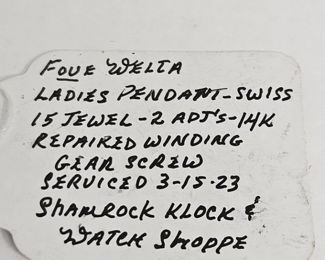 FOUE WELTA
LADIES PENDANT-SWISS
15 JEWEL-2 ADJ'S-14K
REPAIRED WINDING
GEAR SCREW
SERVICED 3-15-23
SHAMROCK KLOCK &
WATCH SHOPPE